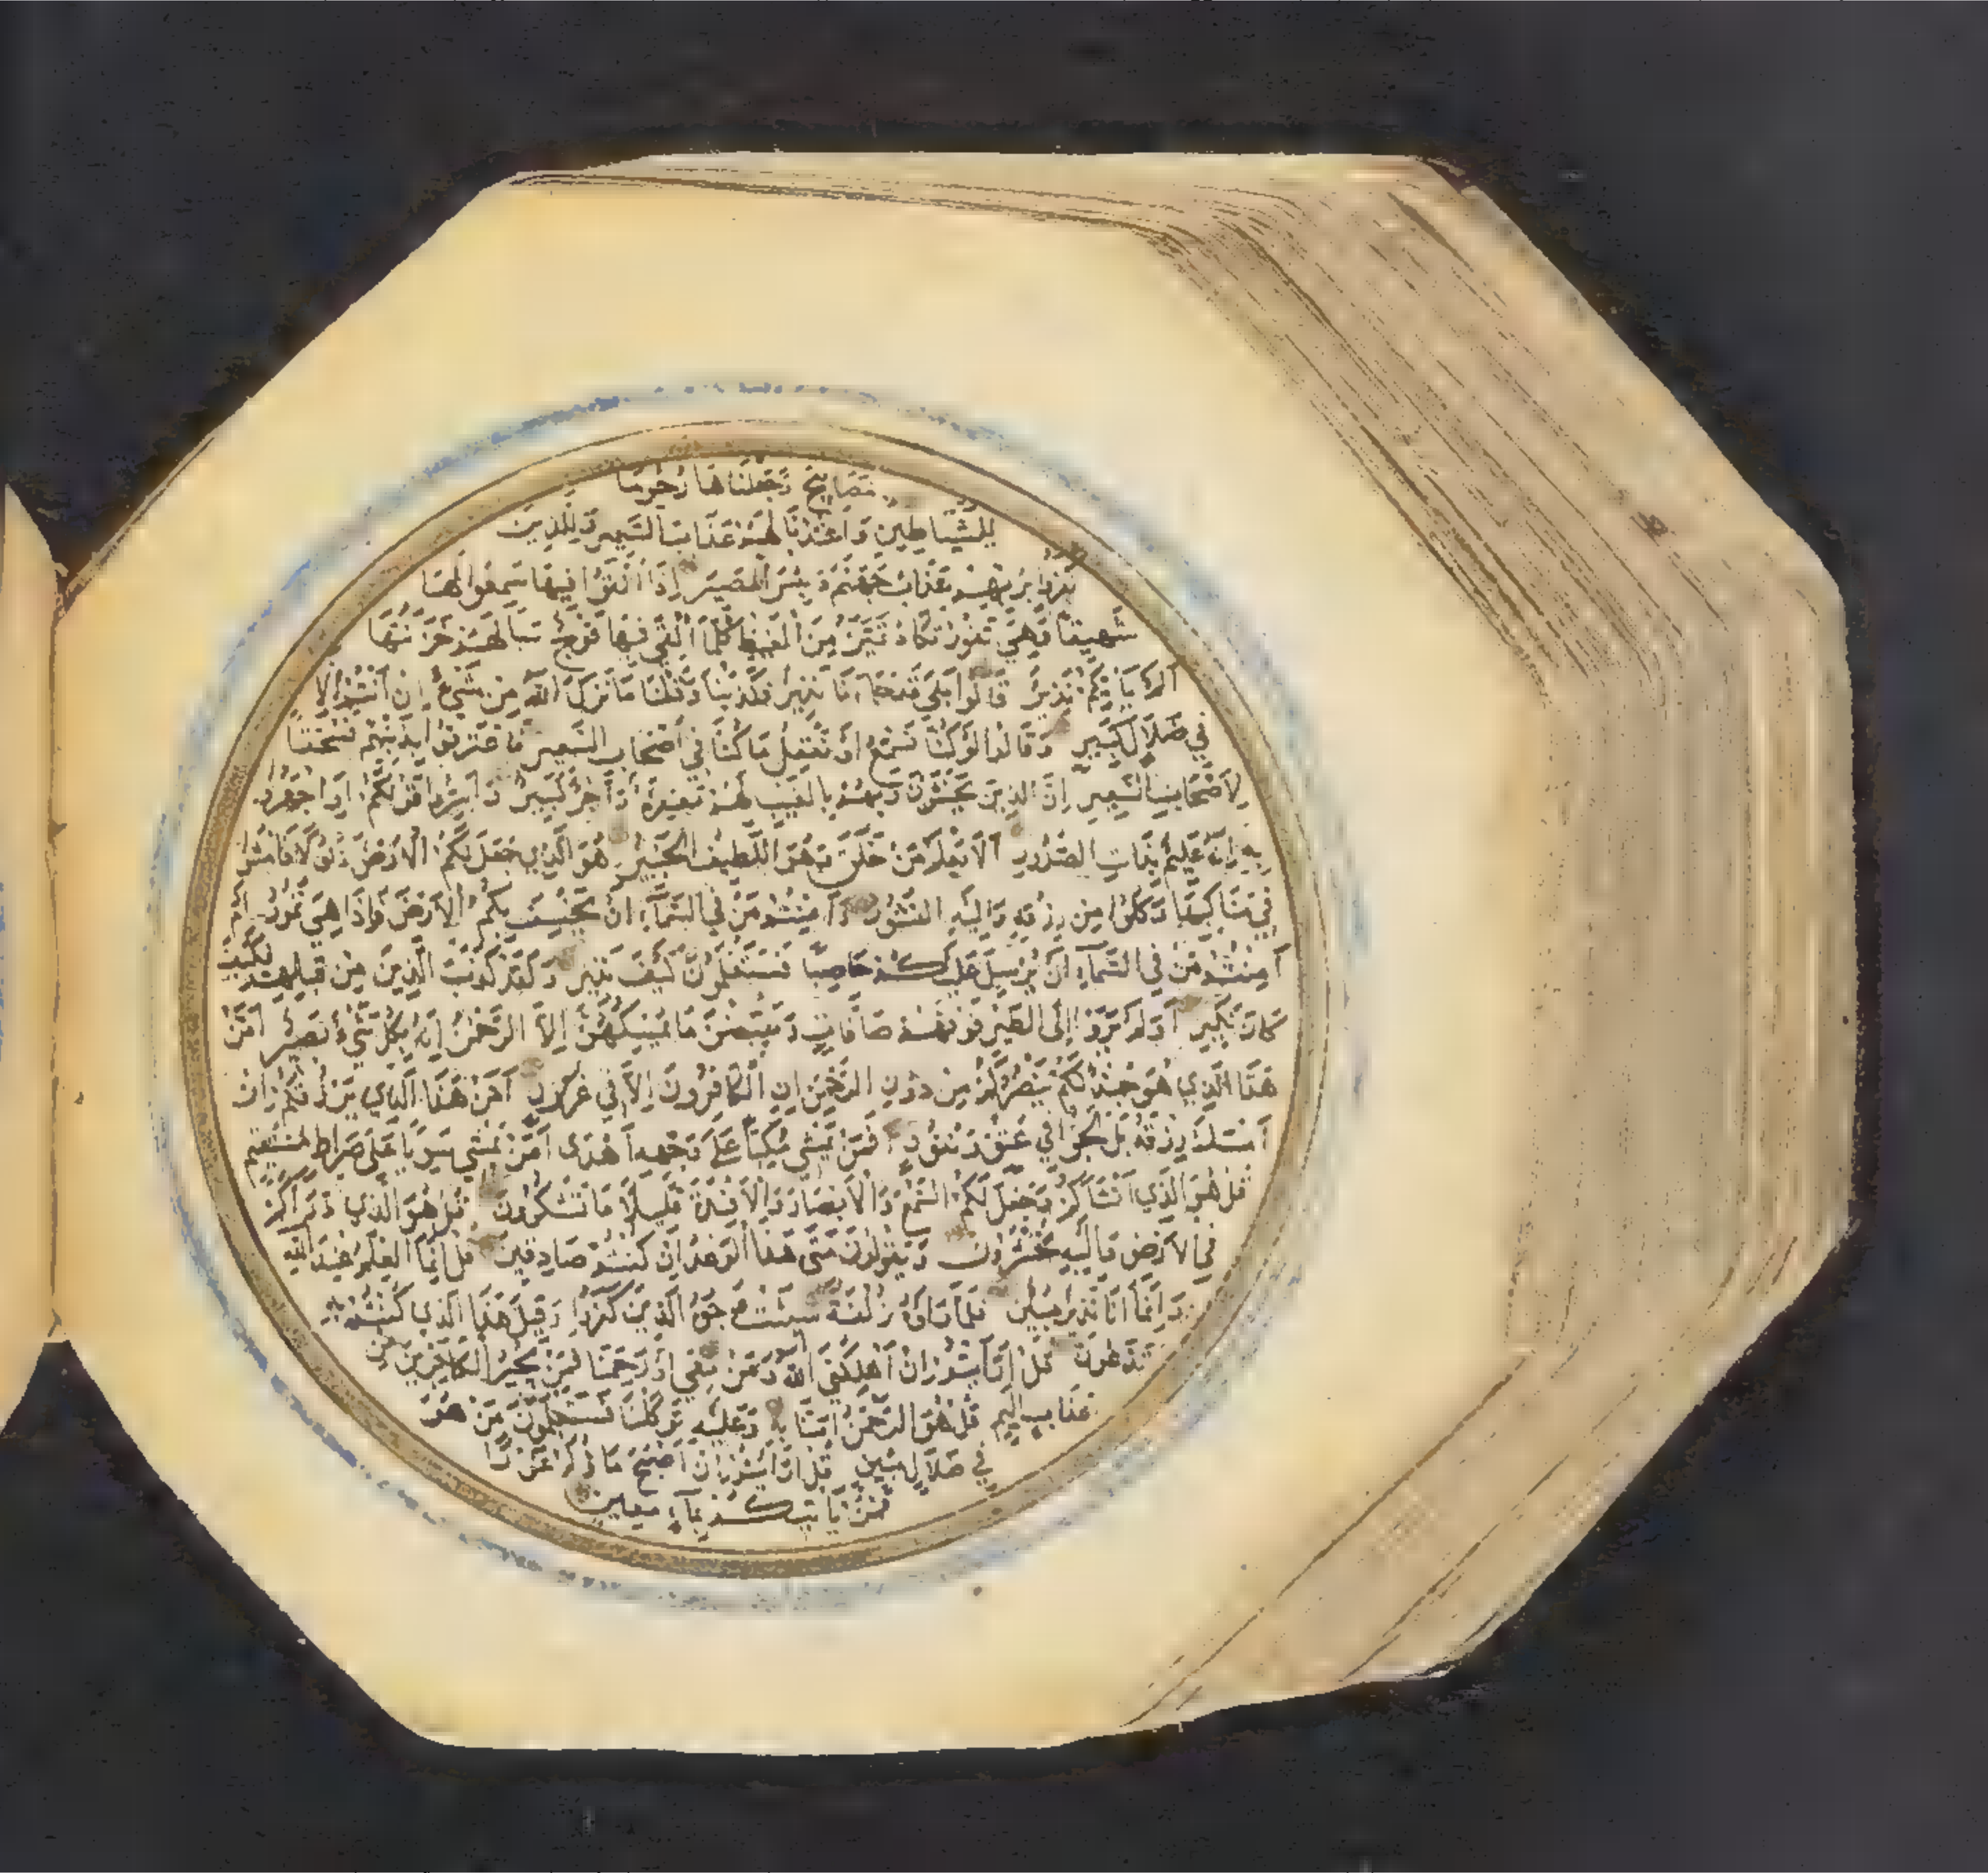 بِمَصَابِيحَ وَجَعَلْنَاهَا رُجُومًا
لِلشَّيَاطِينِ وَاعْتَدْنَا لَهُمْ عَذَابَ السَّعِيرِ وَلِلَّذِينَ
كَفَرُوا بِرَبِّهِمْ عَذَابُ جَهَنَّمَ وَبِئْسَ الْمَصِيرُ اِذَا اُلْقُوا فِيهَا سَمِعُوا لَهَا
شَهِيقًا وَهِيَ تَفُورُ تَكَادُ تَمَيَّزُ مِنَ الْغَيْظِ كُلَّمَا اُلْقِيَ فِيهَا فَوْجٌ سَاَلَهُمْ خَزَنَتُهَا
اَلَمْ يَاْتِكُمْ نَذِيرٌ قَالُوا بَلَى قَدْ جَاءَنَا نَذِيرٌ فَكَذَّبْنَا وَقُلْنَا مَا نَزَّلَ اللَّهُ مِنْ شَيْءٍ اِنْ اَنْتُمْ اِلَّا
فِي ضَلَالٍ كَبِيرٍ وَقَالُوا لَوْ كُنَّا نَسْمَعُ اَوْ نَعْقِلُ مَا كُنَّا فِي اَصْحَابِ السَّعِيرِ فَاعْتَرَفُوا بِذَنْبِهِمْ فَسُحْقًا
لِاَصْحَابِ السَّعِيرِ اِنَّ الَّذِينَ يَخْشَوْنَ رَبَّهُمْ بِالْغَيْبِ لَهُمْ مَغْفِرَةٌ وَاَجْرٌ كَبِيرٌ وَاَسِرُّوا قَوْلَكُمْ اَوِ اجْهَرُوا
بِهِ اِنَّهُ عَلِيمٌ بِذَاتِ الصُّدُورِ اَلَا يَعْلَمُ مَنْ خَلَقَ وَهُوَ اللَّطِيفُ الْخَبِيرُ هُوَ الَّذِي جَعَلَ لَكُمُ الْاَرْضَ ذَلُولًا فَامْشُوا
فِي مَنَاكِبِهَا وَكُلُوا مِنْ رِزْقِهِ وَاِلَيْهِ النُّشُورُ ءَاَمِنْتُمْ مَنْ فِي السَّمَاءِ اَنْ يَخْسِفَ بِكُمُ الْاَرْضَ فَاِذَا هِيَ تَمُورُ اَمْ
اَمِنْتُمْ مَنْ فِي السَّمَاءِ اَنْ يُرْسِلَ عَلَيْكُمْ حَاصِبًا فَسَتَعْلَمُونَ كَيْفَ نَذِيرِ وَلَقَدْ كَذَّبَ الَّذِينَ مِنْ قَبْلِهِمْ فَكَيْفَ
كَانَ نَكِيرِ اَوَلَمْ يَرَوْا اِلَى الطَّيْرِ فَوْقَهُمْ صَافَّاتٍ وَيَقْبِضْنَ مَا يُمْسِكُهُنَّ اِلَّا الرَّحْمٰنُ اِنَّهُ بِكُلِّ شَيْءٍ بَصِيرٌ اَمَّنْ
هَذَا الَّذِي هُوَ جُنْدٌ لَكُمْ يَنْصُرُكُمْ مِنْ دُونِ الرَّحْمٰنِ اِنِ الْكَافِرُونَ اِلَّا فِي غُرُورٍ اَمَّنْ هَذَا الَّذِي يَرْزُقُكُمْ اِنْ
اَمْسَكَ رِزْقَهُ بَلْ لَجُّوا فِي عُتُوٍّ وَنُفُورٍ اَفَمَنْ يَمْشِي مُكِبًّا عَلَى وَجْهِهِ اَهْدَى اَمَّنْ يَمْشِي سَوِيًّا عَلَى صِرَاطٍ مُسْتَقِيمٍ
قُلْ هُوَ الَّذِي اَنْشَاَكُمْ وَجَعَلَ لَكُمُ السَّمْعَ وَالْاَبْصَارَ وَالْاَفْئِدَةَ قَلِيلًا مَا تَشْكُرُونَ قُلْ هُوَ الَّذِي ذَرَاَكُمْ
فِي الْاَرْضِ وَاِلَيْهِ تُحْشَرُونَ وَيَقُولُونَ مَتَى هَذَا الْوَعْدُ اِنْ كُنْتُمْ صَادِقِينَ قُلْ اِنَّمَا الْعِلْمُ عِنْدَ اللَّهِ
وَاِنَّمَا اَنَا نَذِيرٌ مُبِينٌ فَلَمَّا رَاَوْهُ زُلْفَةً سِيئَتْ وُجُوهُ الَّذِينَ كَفَرُوا وَقِيلَ هَذَا الَّذِي كُنْتُمْ بِهِ
تَدَّعُونَ قُلْ اَرَاَيْتُمْ اِنْ اَهْلَكَنِيَ اللَّهُ وَمَنْ مَعِيَ اَوْ رَحِمَنَا فَمَنْ يُجِيرُ الْكَافِرِينَ مِنْ
عَذَابٍ اَلِيمٍ قُلْ هُوَ الرَّحْمٰنُ اٰمَنَّا بِهِ وَعَلَيْهِ تَوَكَّلْنَا فَسَتَعْلَمُونَ مَنْ هُوَ
فِي ضَلَالٍ مُبِينٍ قُلْ اَرَاَيْتُمْ اِنْ اَصْبَحَ مَاؤُكُمْ غَوْرًا
فَمَنْ يَاْتِيكُمْ بِمَاءٍ مَعِينٍ